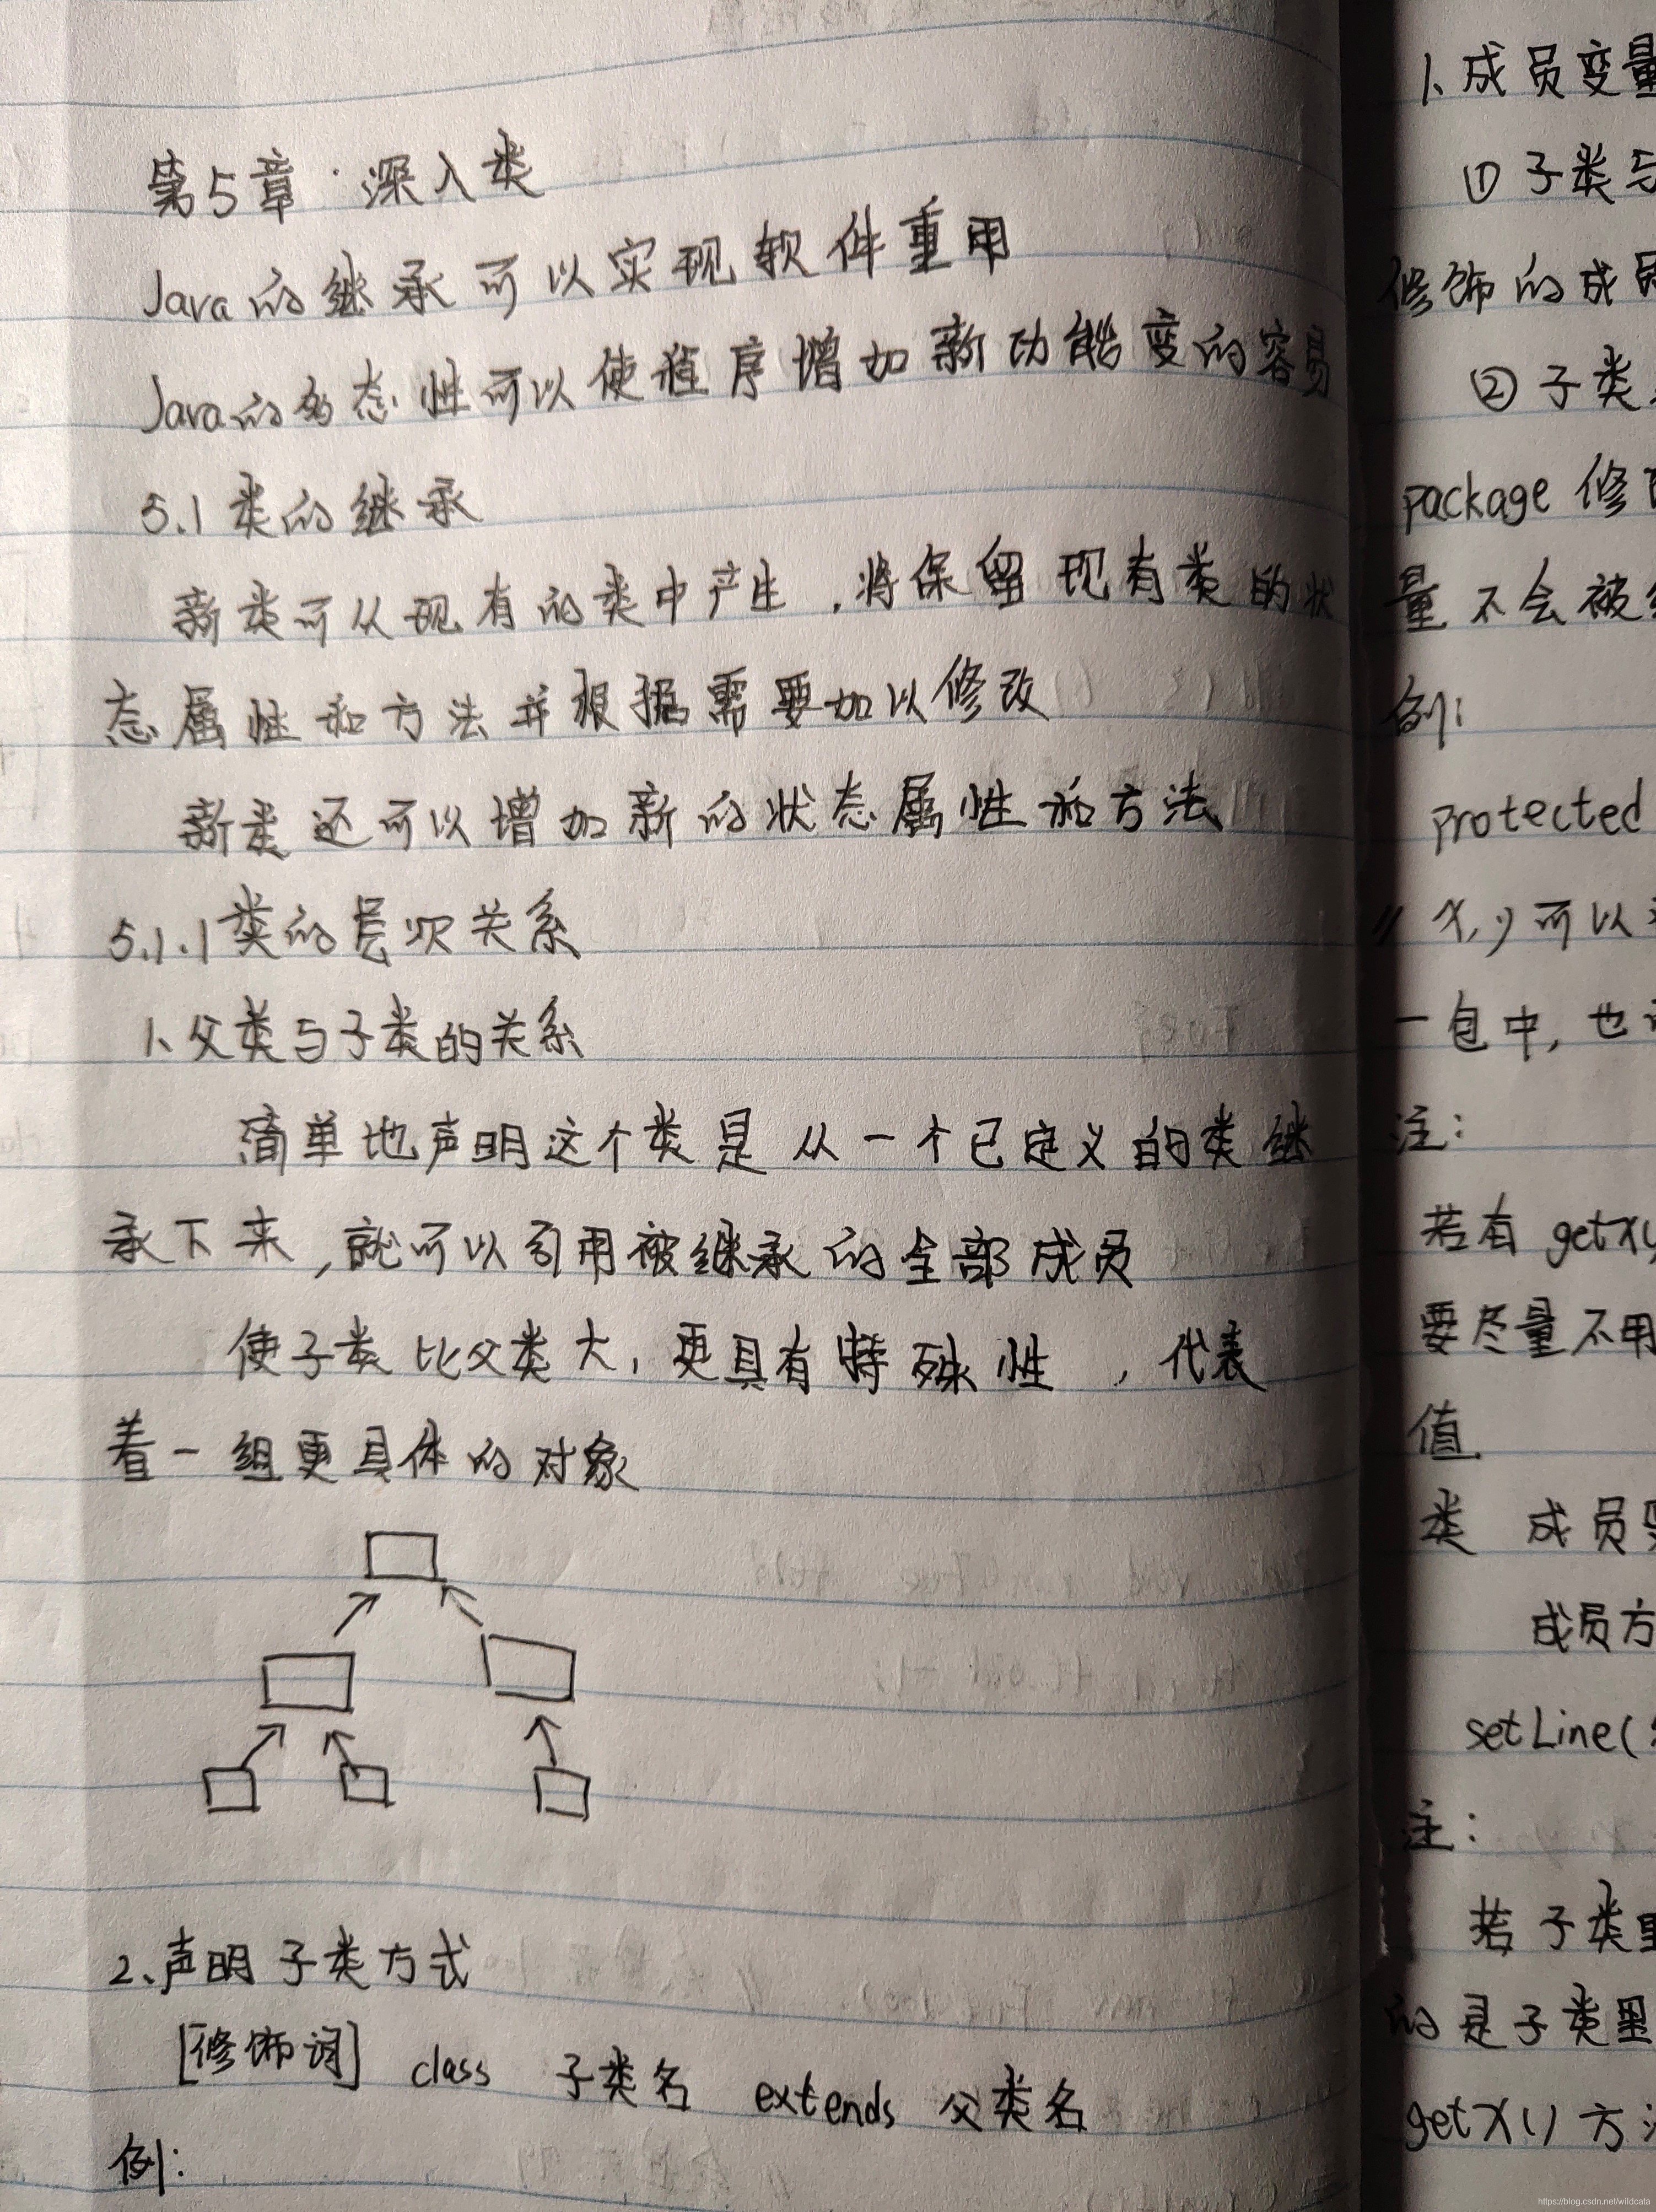 第5章 深入类
Java的继承可以实现软件重用
Java的多态性可以使程序增加新功能变的容易
5.1 类的继承
新类可从现有的类中产生,将保留现有类的状
态属性和方法并根据需要加以修改
新类还可以增加新的状态属性和方法
5.1.1类的层次关系
1、父类与子类的关系
简单地声明这个类是从一个已定义的类继
承下来,就可以引用被继承的全部成员
使子类比父类大,更具有特殊性,代表
着一组更具体的对象
2、声明子类方式
[修饰词] class 子类名 extends 父类名
例:
1、成员变量
① 子类与
修饰的成员
② 子类
package 修
量不会被
例:
protected
// x,y可以
一包中,也
注:
若有 getx
要尽量不用
值
类 成员变
成员方
setLine(
注:
若子类里
的是子类里
getX() 方法
https://blog.csdn.net/wildcata